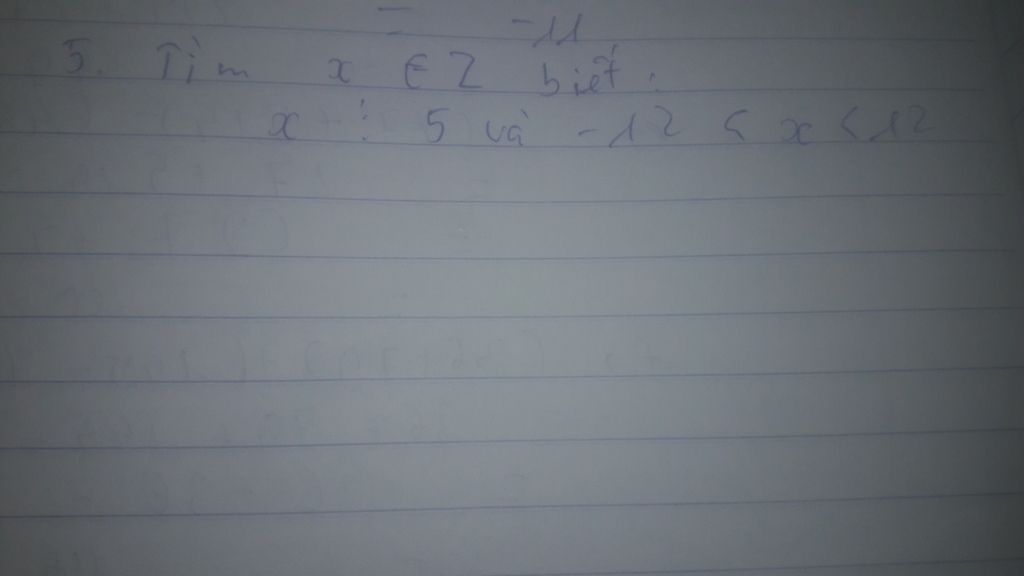 -11
5. Tìm x ∈ Z biết:
x ⋮ 5 và -12 < x < 12